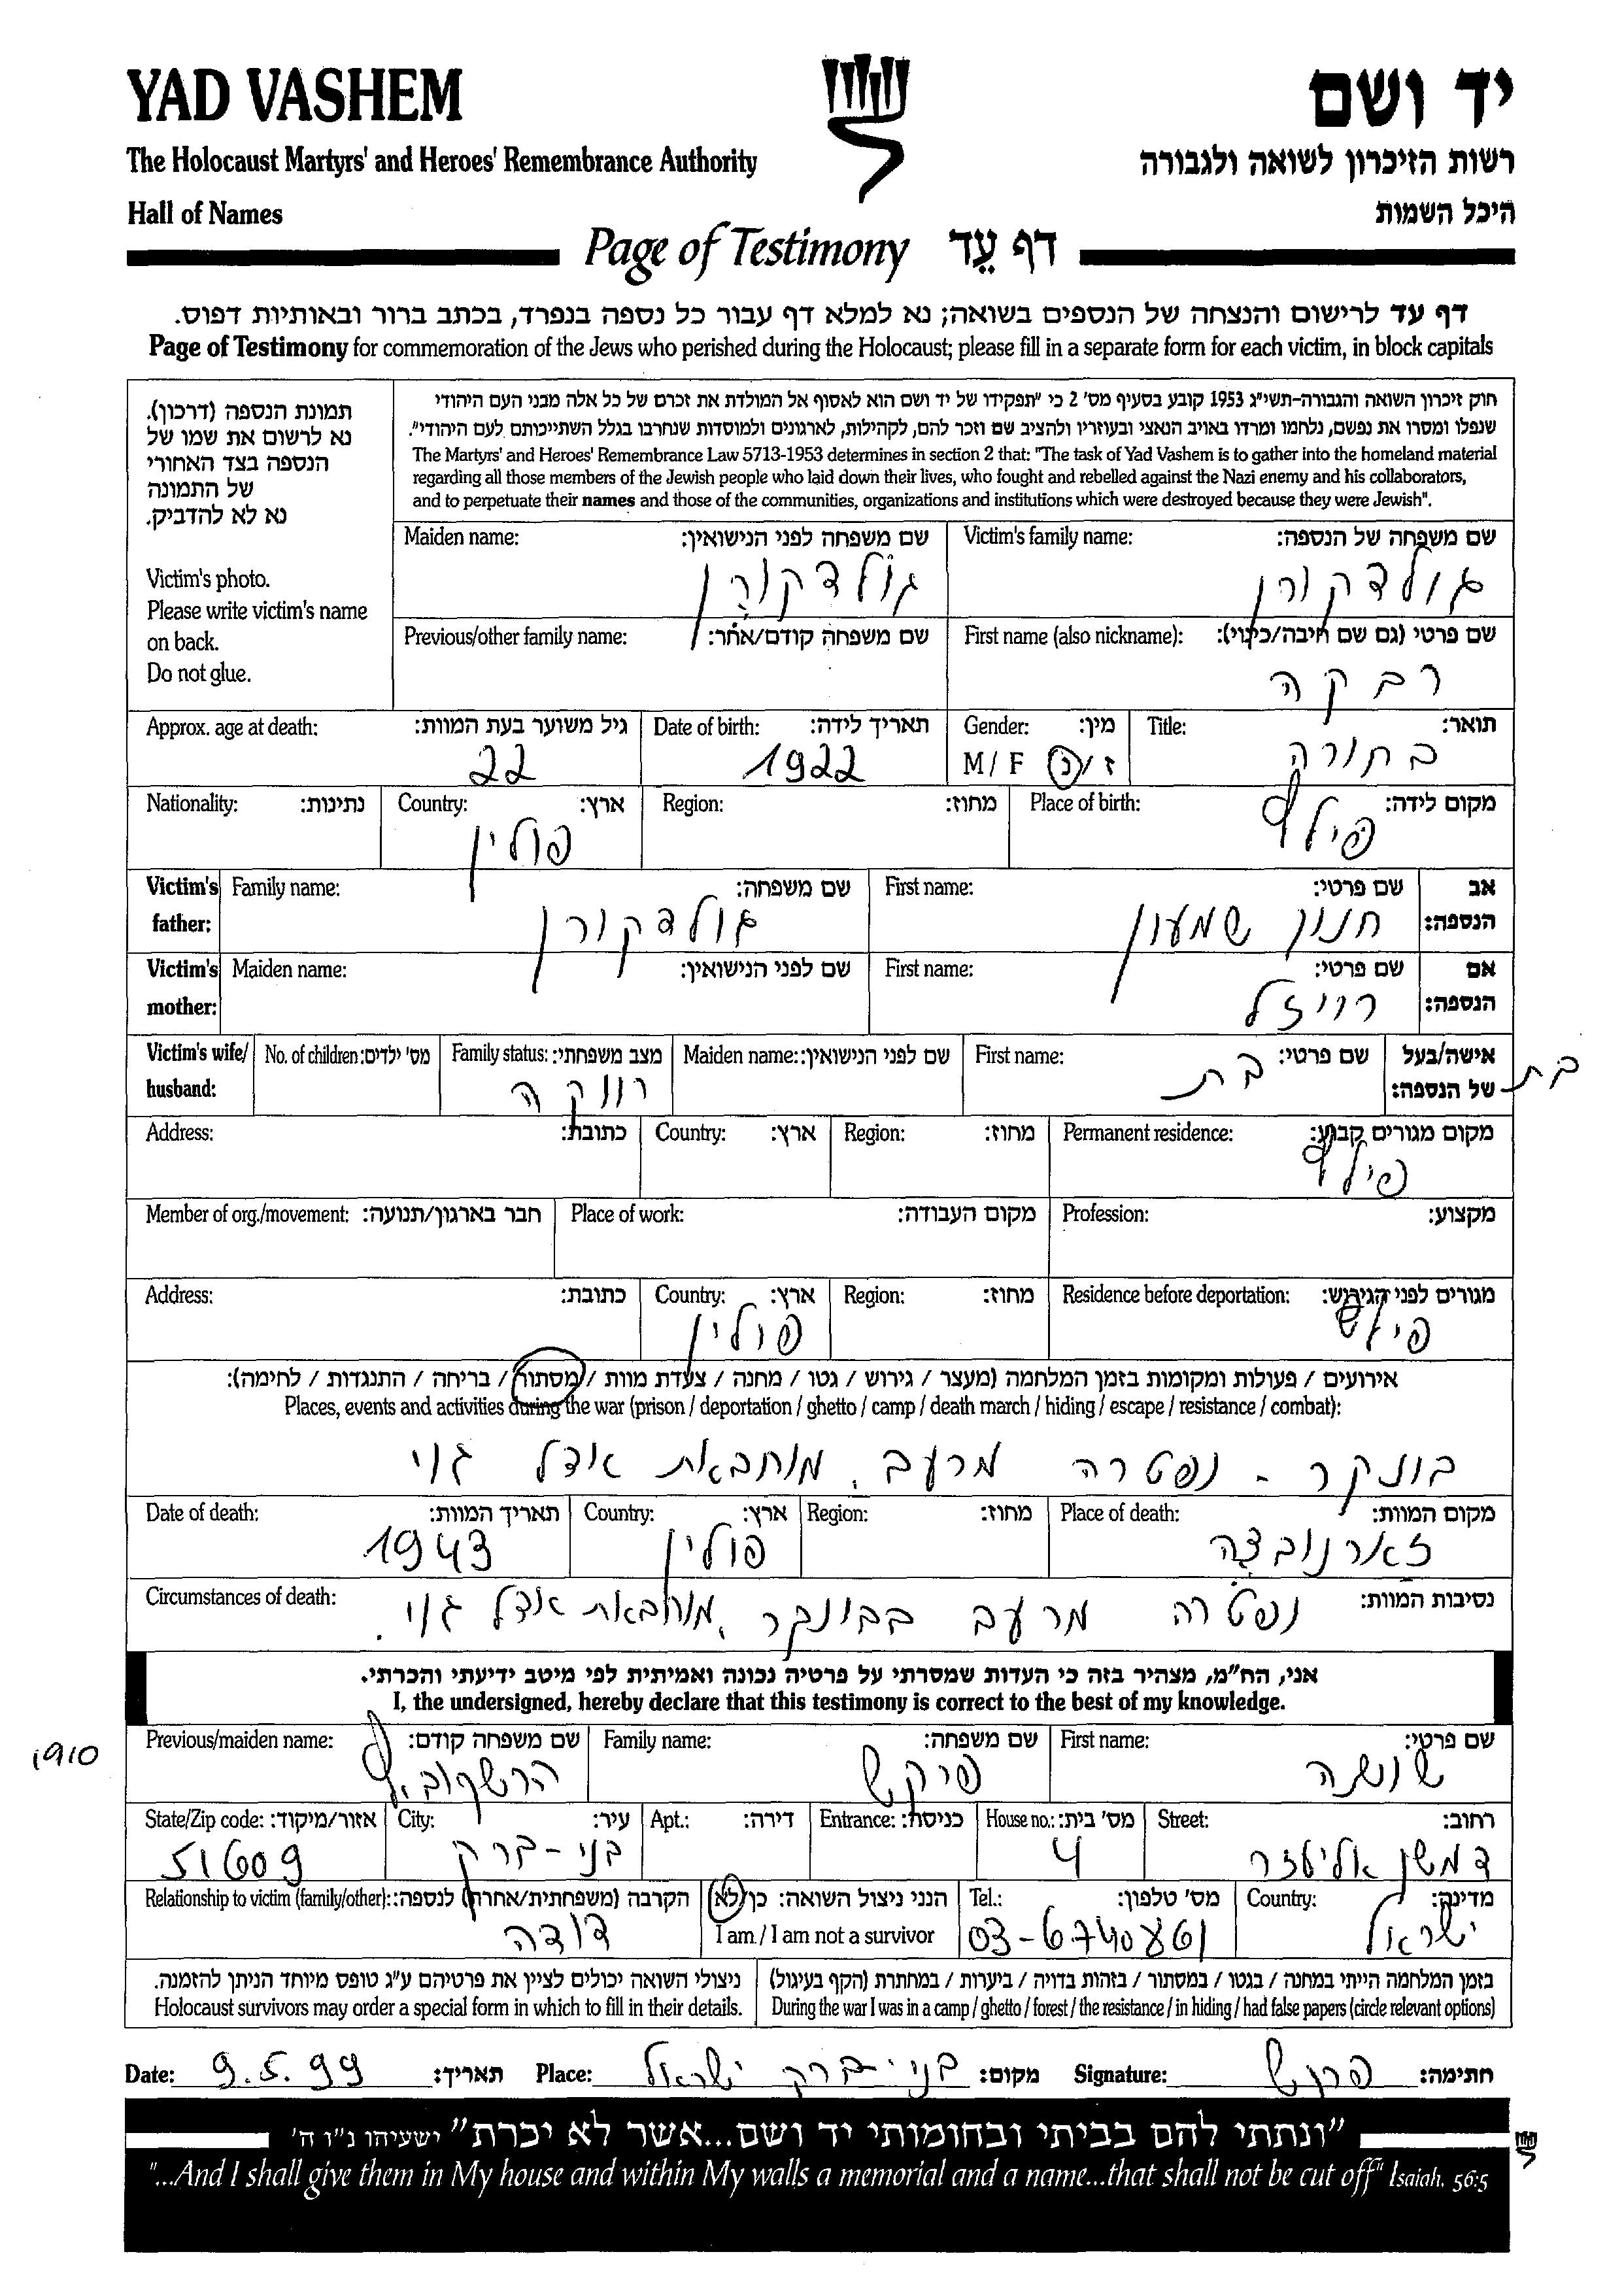 YAD VASHEM
יד ושם
The Holocaust Martyrs' and Heroes' Remembrance Authority
רשות הזיכרון לשואה ולגבורה
Hall of Names
היכל השמות
Page of Testimony דף עֵד
דף עד לרישום והנצחה של הנספים בשואה; נא למלא דף עבור כל נספה בנפרד, בכתב ברור ובאותיות דפוס.
Page of Testimony for commemoration of the Jews who perished during the Holocaust; please fill in a separate form for each victim, in block capitals
תמונת הנספה (דרכון).
נא לרשום את שמו של
הנספה בצד האחורי
של התמונה
נא לא להדביק.
Victim's photo.
Please write victim's name
on back.
Do not glue.
חוק זיכרון השואה והגבורה-תשי"ג 1953 קובע בסעיף מס' 2 כי "תפקידו של יד ושם הוא לאסוף אל המולדת את זכרם של כל אלה מבני העם היהודי
שנפלו ומסרו את נפשם, נלחמו ומרדו באויב הנאצי ובעוזריו ולהציב שם וזכר להם, לקהילות, לארגונים ולמוסדות שנחרבו בגלל השתייכותם לעם היהודי".
The Martyrs' and Heroes' Remembrance Law 5713-1953 determines in section 2 that: "The task of Yad Vashem is to gather into the homeland material
regarding all those members of the Jewish people who laid down their lives, who fought and rebelled against the Nazi enemy and his collaborators,
and to perpetuate their names and those of the communities, organizations and institutions which were destroyed because they were Jewish".
Victim's family name: שם משפחה של הנספה:
גולדקורן
Maiden name: שם משפחה לפני הנישואין:
גולדקורן
First name (also nickname): שם פרטי (גם שם חיבה/כינוי):
רבקה
Previous/other family name: שם משפחה קודם/אחר:
Title: תואר:
בחורה
Gender: מין:
M / F ז / נ
Date of birth: תאריך לידה:
1922
Approx. age at death: גיל משוער בעת המוות:
22
Place of birth: מקום לידה:
פילץ
Region: מחוז:
Country: ארץ:
פולין
Nationality: נתינות:
Victim's father: אב הנספה:
First name: שם פרטי:
חנון שמעון
Family name: שם משפחה:
גולדקורן
Victim's mother: אם הנספה:
First name: שם פרטי:
רויזל
Maiden name: שם לפני הנישואין:
Victim's wife/ husband: אישה/בעל של הנספה:
בת
First name: שם פרטי:
בת
Maiden name: שם לפני הנישואין:
Family status: מצב משפחתי:
רווקה
No. of children: מס' ילדים:
Permanent residence: מקום מגורים קבוע:
פילץ
Region: מחוז:
Country: ארץ:
Address: כתובת:
Profession: מקצוע:
Place of work: מקום העבודה:
Member of org./movement: חבר בארגון/תנועה:
Residence before deportation: מגורים לפני הגירוש:
Region: מחוז:
Country: ארץ:
פולין
Address: כתובת:
אירועים / פעולות ומקומות בזמן המלחמה (מעצר / גירוש / גטו / מחנה / צעדת מוות / מסתור / בריחה / התנגדות / לחימה):
Places, events and activities during the war (prison / deportation / ghetto / camp / death march / hiding / escape / resistance / combat):
בונקר - נפטרה מרעב. מוחבאת אצל גוי
Place of death: מקום המוות:
זארנובצה
Region: מחוז:
Country: ארץ:
פולין
Date of death: תאריך המוות:
1943
Circumstances of death: נסיבות המוות:
נפטרה מרעב בבונקר, מוחבאת אצל גוי.
אני, הח"מ, מצהיר בזה כי העדות שמסרתי על פרטיה נכונה ואמיתית לפי מיטב ידיעתי והכרתי.
I, the undersigned, hereby declare that this testimony is correct to the best of my knowledge.
1910
First name: שם פרטי:
שושה
Family name: שם משפחה:
פרקש
Previous/maiden name: שם משפחה קודם:
הרשקוביץ
Street: רחוב:
דמשק אליעזר
House no.: מס' בית:
4
Entrance: כניסה:
Apt.: דירה:
City: עיר:
בני-ברק
State/Zip code: אזור/מיקוד:
51609
Country: מדינה:
ישראל
Tel.: מס' טלפון:
03-6740861
הנני ניצול השואה: כן/לא
I am / I am not a survivor
Relationship to victim (family/other): הקרבה (משפחתית/אחרת) לנספה:
דודה
בזמן המלחמה הייתי במחנה / בגטו / במסתור / בזהות בדויה / ביערות / במחתרת (הקף בעיגול)
During the war I was in a camp / ghetto / forest / the resistance / in hiding / had false papers (circle relevant options)
ניצולי השואה יכולים לציין את פרטיהם ע"ג טופס מיוחד הניתן להזמנה.
Holocaust survivors may order a special form in which to fill in their details.
Date: 9.5.99 תאריך: Place: בני-ברק ישראל מקום: Signature: פרקש חתימה:
"ונתתי להם בביתי ובחומותי יד ושם...אשר לא יכרת" ישעיהו נ"ו ה'
"...And I shall give them in My house and within My walls a memorial and a name...that shall not be cut off" Isaiah, 56:5